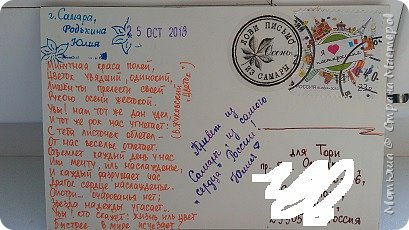 г. Самара,
Родькина
Юлия
25 ОКТ 2013
ЛОВИ ПИСЬМО
Осень
ИЗ САМАРЫ
РОССИЯ
Минутная краса полей,
Цветок увядший, одинокий,
Лишён ты прелести своей
Рукою осени жестокой.
Увы! нам тот же дан удел,
И тот же рок нас угнетает:
С тебя листочек облетел -
От нас веселье отлетает.
Отъемлет каждый день у нас
Или мечту, иль наслажденье,
И каждый разрушает час
Драгое сердцу наслажденье.
Смотри... очарованья нет;
Звезда надежды угасает...
Увы! кто скажет: жизнь иль цвет
Быстрее в мире исчезает?
(В. Жуковский "Цветок")
Привет из
Самары из самого
сердца России!
Юлия
для Тори
Россия
Страна Мастеров